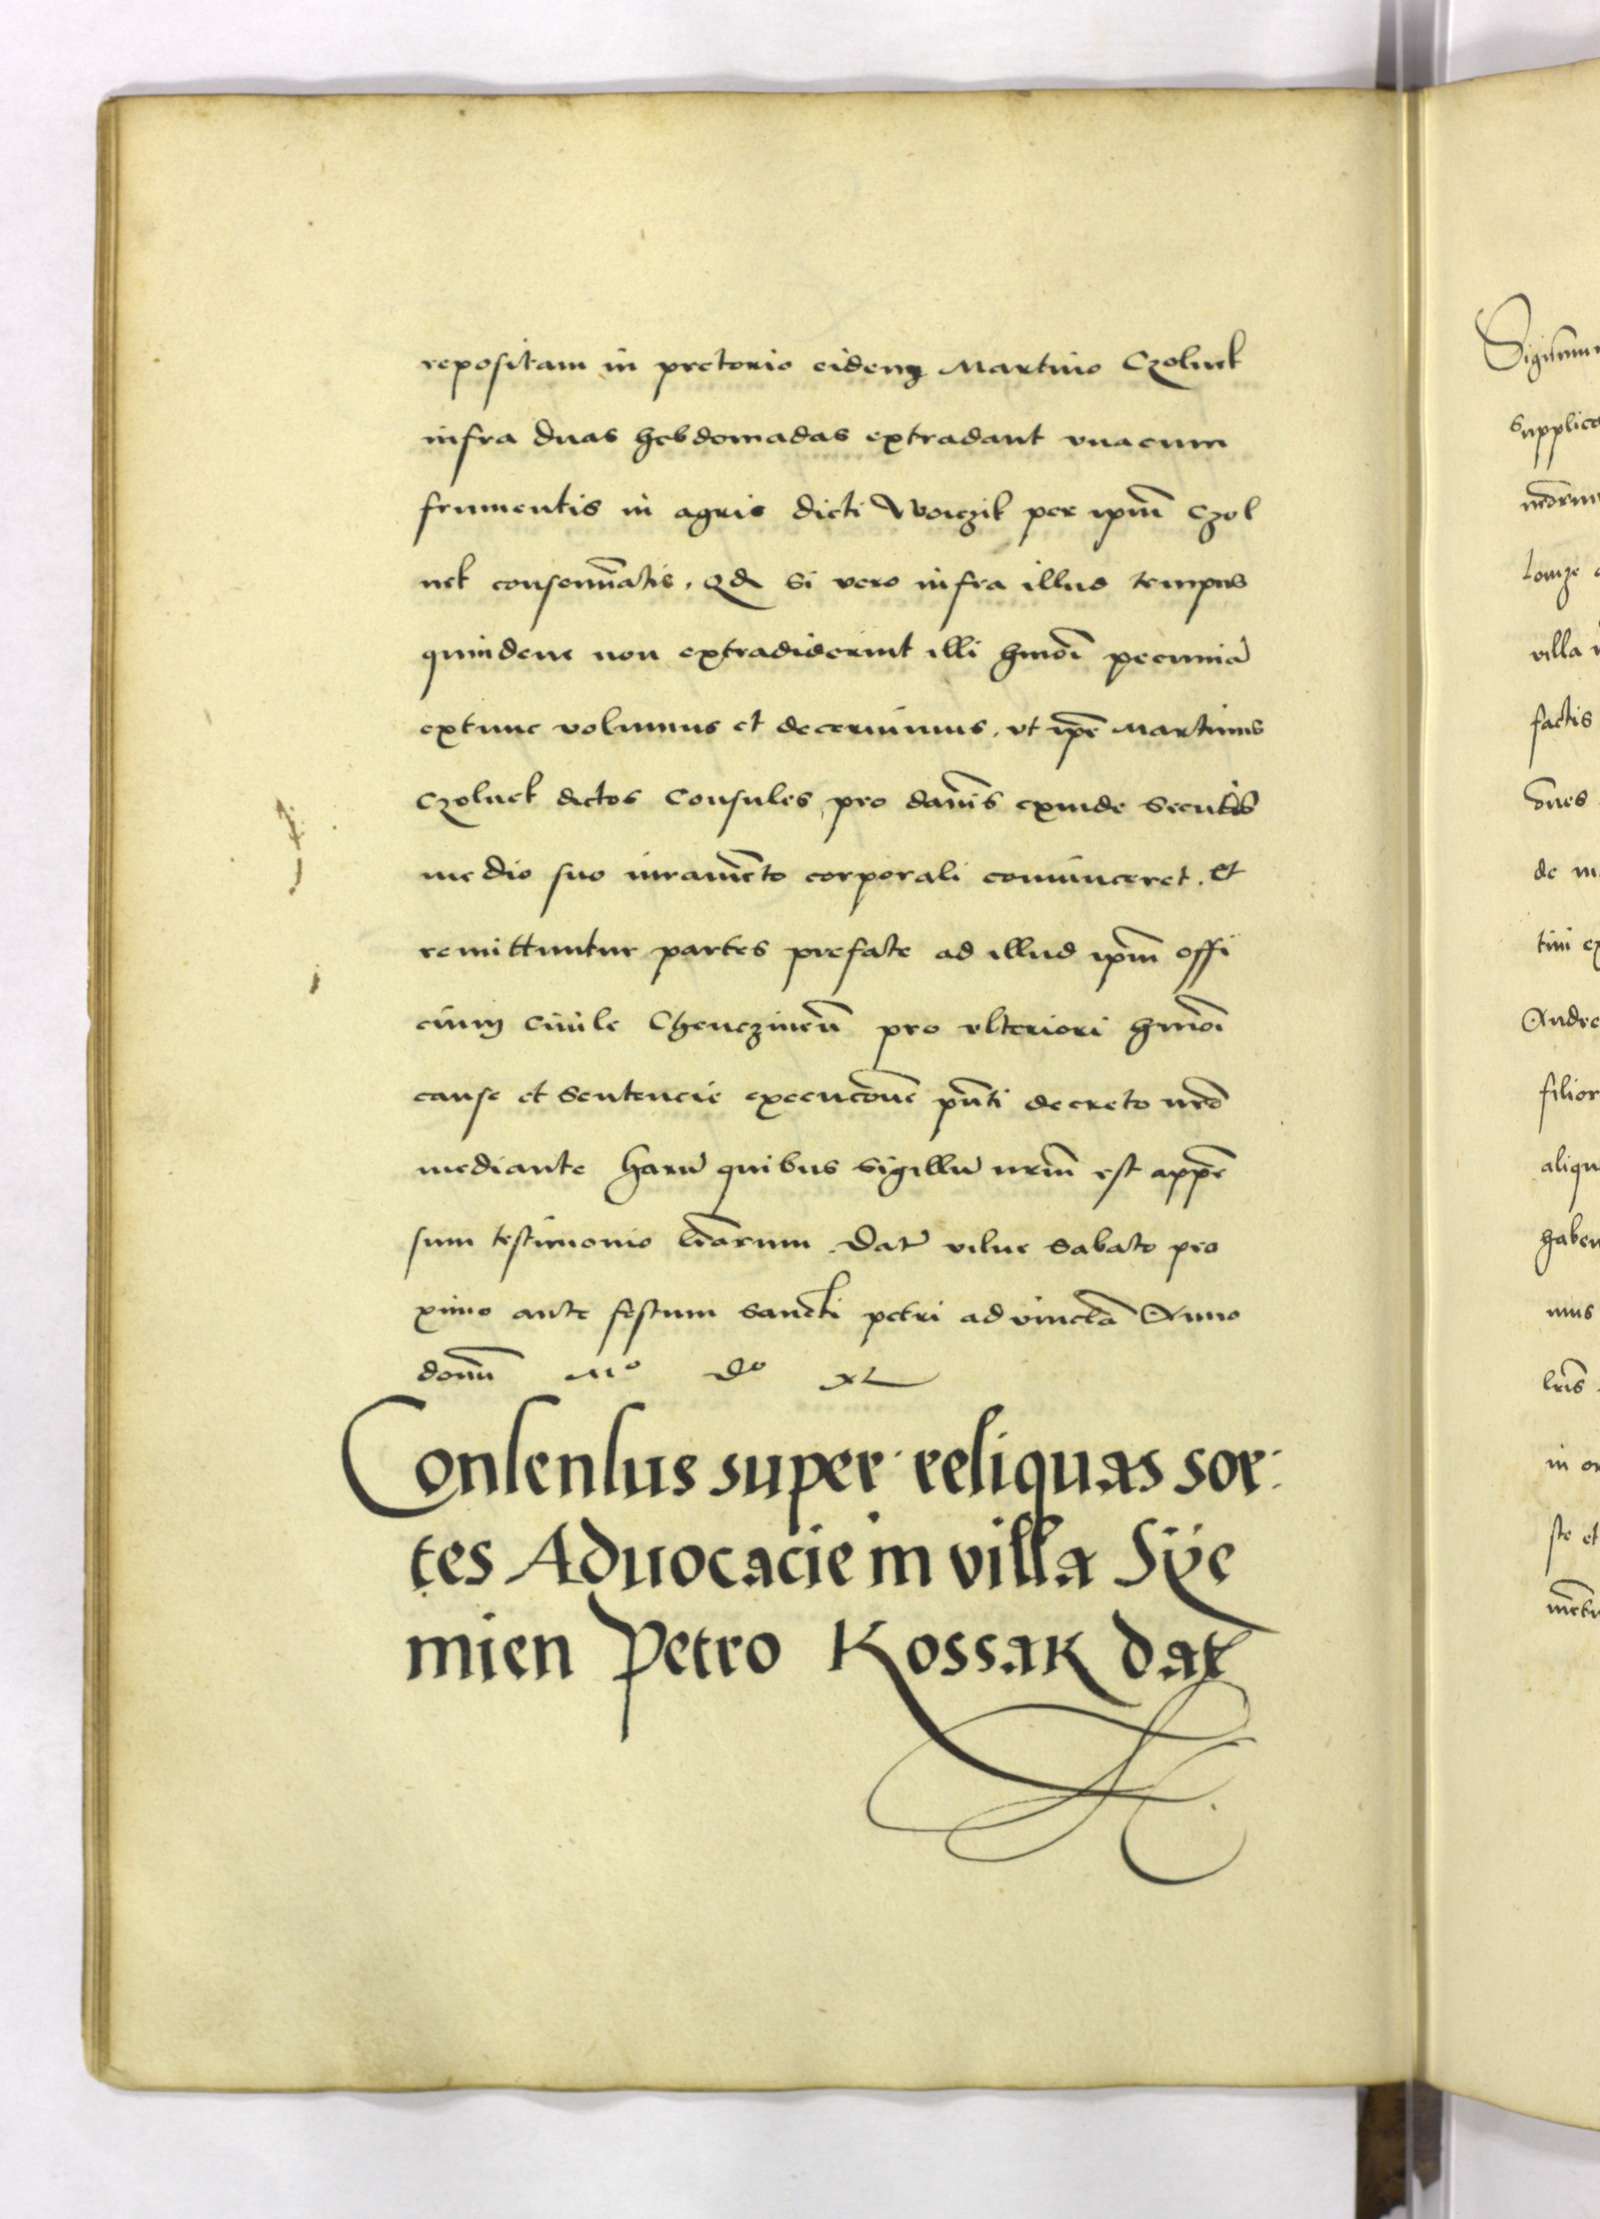 repositam in pretorio eidem Martino Czolnek
infra duas hebdomadas extradant vnacum
frumentis in agris dicti Woiczik per ipm̄ Czol
nek conseruatis. Qd si vero infra illud tempus
quindene non extradiderint illi hmōi pecuniā
extunc volumus et decernimus, vt ipē Martinus
Czolnek dictos Consules pro damīs exinde secutis
medio suo iuramēto corporali conuinceret. Et
remittuntur partes prefate ad illud ipm̄ offi
cium Ciuile Chenczineñ pro vlteriori hmōi
cause et Sentencie execucōne pn̄ti decreto nrō
mediante Harū quibus Sigillū nrm̄ est appē
sum testimonio lrārum Dat̄ vilne Sabato pro
ximo ante festum Sancti petri advincla Anno
domī Mº dº XL
Consensus super reliquas sor
tes Aduocacie in villa Sÿe
mien Petro Kossak dat̄
Sigismun
supplica
lomze
villa
factis
ōnes
de m
tini ex
Andre
filior
aliqu
haben
mus
lrīs
in or
ste et